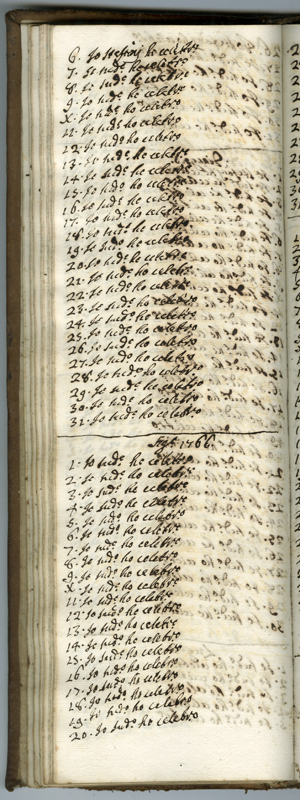 6. Io stesso ho celebro
7. Io sud.º ho celebro
8. Io sud.º ho celebro
9. Io sud.º ho celebro
X. Io sud.º ho celebro
11. Io sud.º ho celebro
12. Io sud.º ho celebro
13. Io sud.º ho celebro
14. Io sud.º ho celebro
15. Io sud.º ho celebro
16. Io sud.º ho celebro
17. Io sud.º ho celebro
18. Io sud.º ho celebro
19. Io sud.º ho celebro
20. Io sud.º ho celebro
21. Io sud.º ho celebro
22. Io sud.º ho celebro
23. Io sud.º ho celebro
24. Io sud.º ho celebro
25. Io sud.º ho celebro
26. Io sud.º ho celebro
27. Io sud.º ho celebro
28. Io sud.º ho celebro
29. Io sud.º ho celebro
30. Io sud.º ho celebro
31. Io sud.º ho celebro
1766
1. Io sud.º ho celebro
2. Io sud.º ho celebro
3. Io sud.º ho celebro
4. Io sud.º ho celebro
5. Io sud.º ho celebro
6. Io sud.º ho celebro
7. Io sud.º ho celebro
8. Io sud.º ho celebro
9. Io sud.º ho celebro
X. Io sud.º ho celebro
11. Io sud.º ho celebro
12. Io sud.º ho celebro
13. Io sud.º ho celebro
14. Io sud.º ho celebro
15. Io sud.º ho celebro
16. Io sud.º ho celebro
17. Io sud.º ho celebro
18. Io sud.º ho celebro
19. Io sud.º ho celebro
20. Io sud.º ho celebro